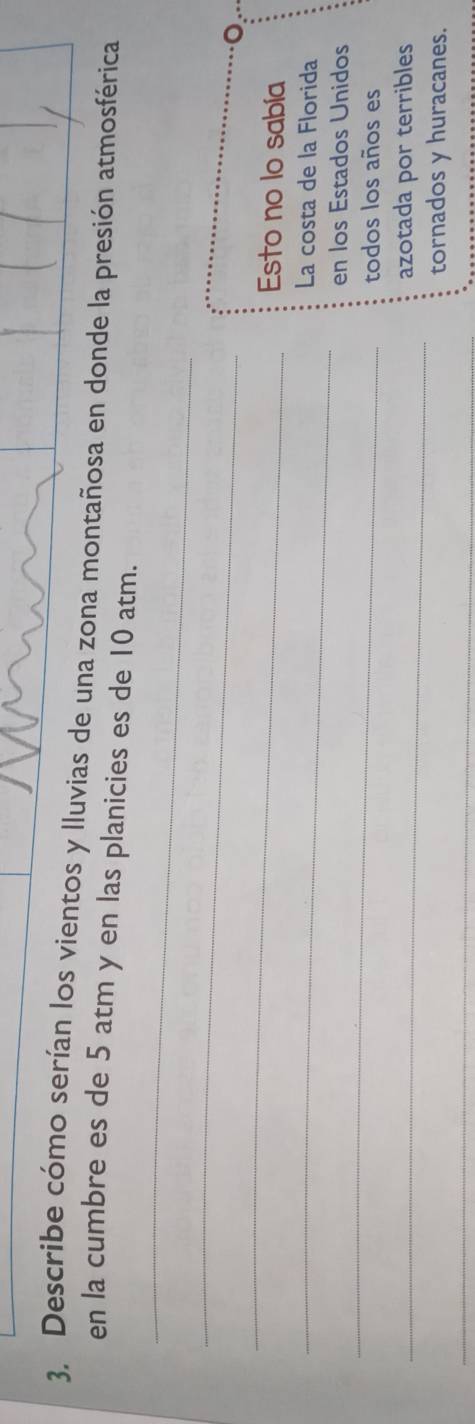 3. Describe cómo serían los vientos y lluvias de una zona montañosa en donde la presión atmosférica
en la cumbre es de 5 atm y en las planicies es de 10 atm.
Esto no lo sabía
La costa de la Florida
en los Estados Unidos
todos los años es
azotada por terribles
tornados y huracanes.